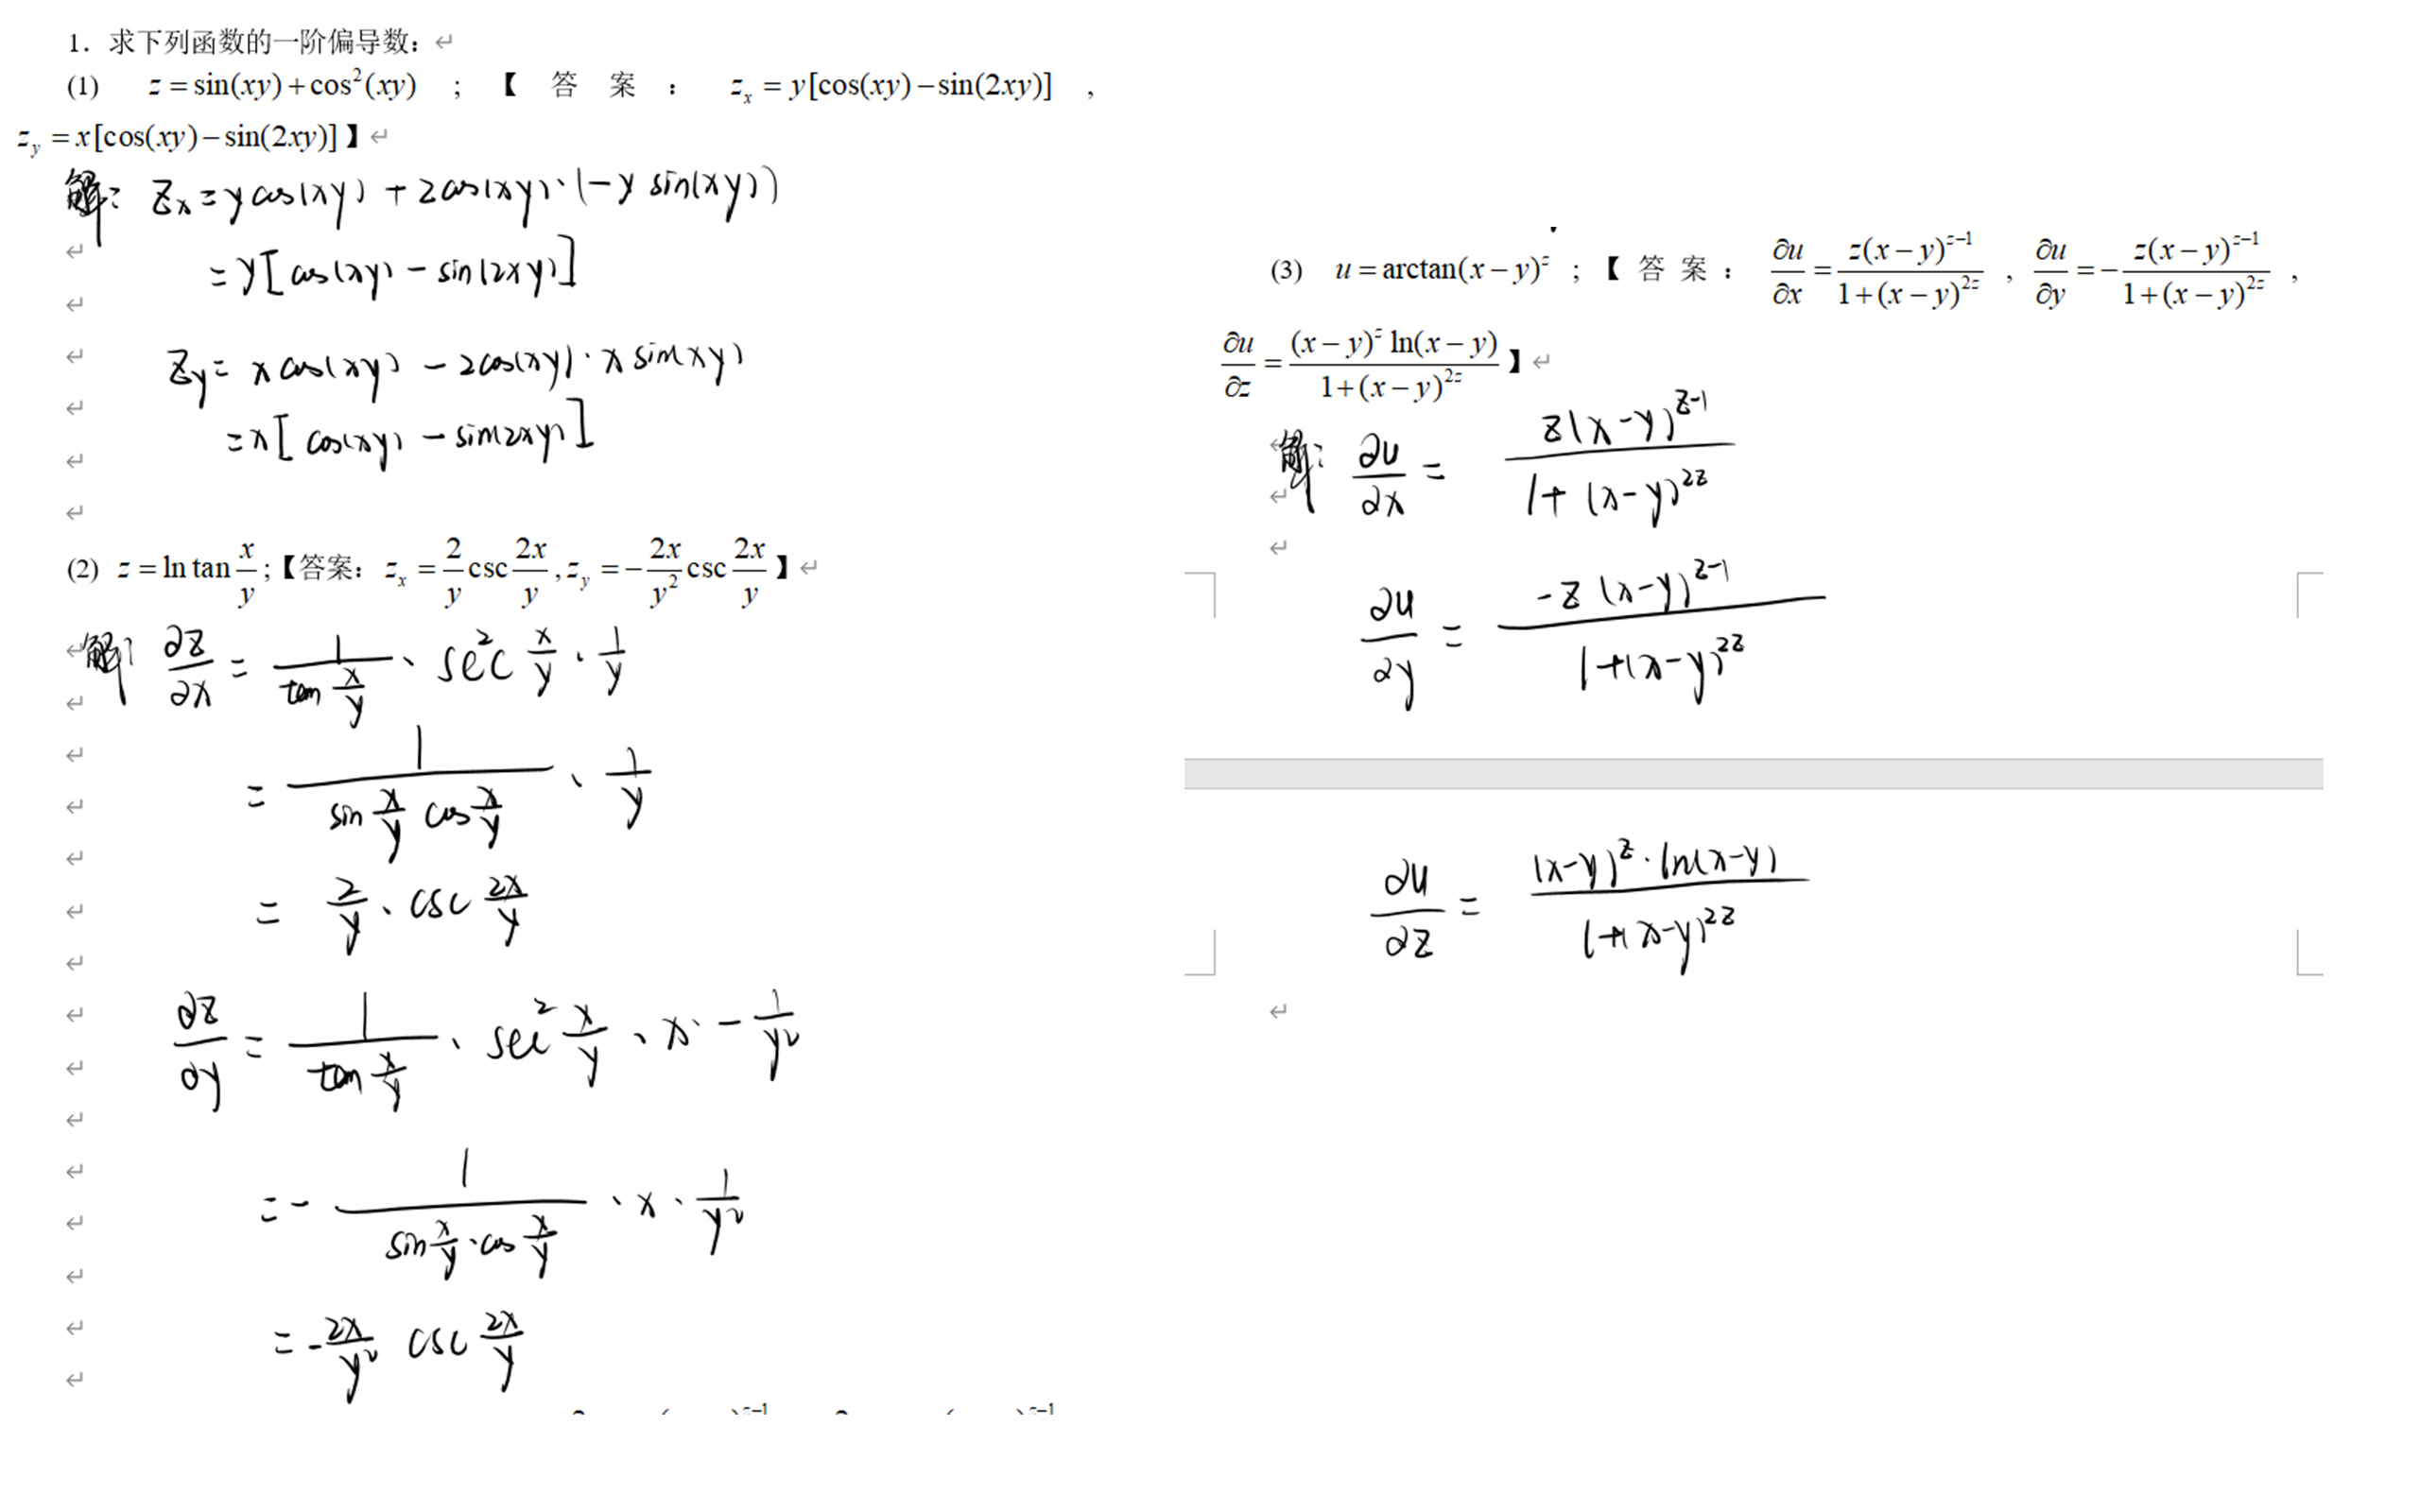 1. 求下列函数的一阶偏导数：
(1) z = sin(xy) + cos²(xy) ；【答案： z_x = y[cos(xy) − sin(2xy)] ，
z_y = x[cos(xy) − sin(2xy)]】
解: Z_x = y cos(xy) + 2cos(xy)·(−y sin(xy))
= y[cos(xy) − sin(2xy)]
Z_y = x cos(xy) − 2cos(xy)·x sin(xy)
= x[cos(xy) − sin(2xy)]
(2) z = ln tan x/y ;【答案： z_x = 2/y csc 2x/y , z_y = − 2x/y² csc 2x/y】
解: ∂z/∂x = 1/(tan x/y) · sec² x/y · 1/y
= 1/(sin x/y cos x/y) · 1/y
= 2/y · csc 2x/y
∂z/∂y = 1/(tan x/y) · sec² x/y · x · − 1/y²
= − 1/(sin x/y · cos x/y) · x · 1/y²
= − 2x/y² csc 2x/y
(3) u = arctan(x − y)^z ；【答案： ∂u/∂x = z(x − y)^(z−1)/(1 + (x − y)^(2z)) ， ∂u/∂y = − z(x − y)^(z−1)/(1 + (x − y)^(2z)) ，
∂u/∂z = (x − y)^z ln(x − y)/(1 + (x − y)^(2z))】
解: ∂u/∂x = z(x−y)^(z−1)/(1 + (x−y)^(2z))
∂u/∂y = −z(x−y)^(z−1)/(1+(x−y)^(2z))
∂u/∂z = (x−y)^z · ln(x−y)/(1+(x−y)^(2z))